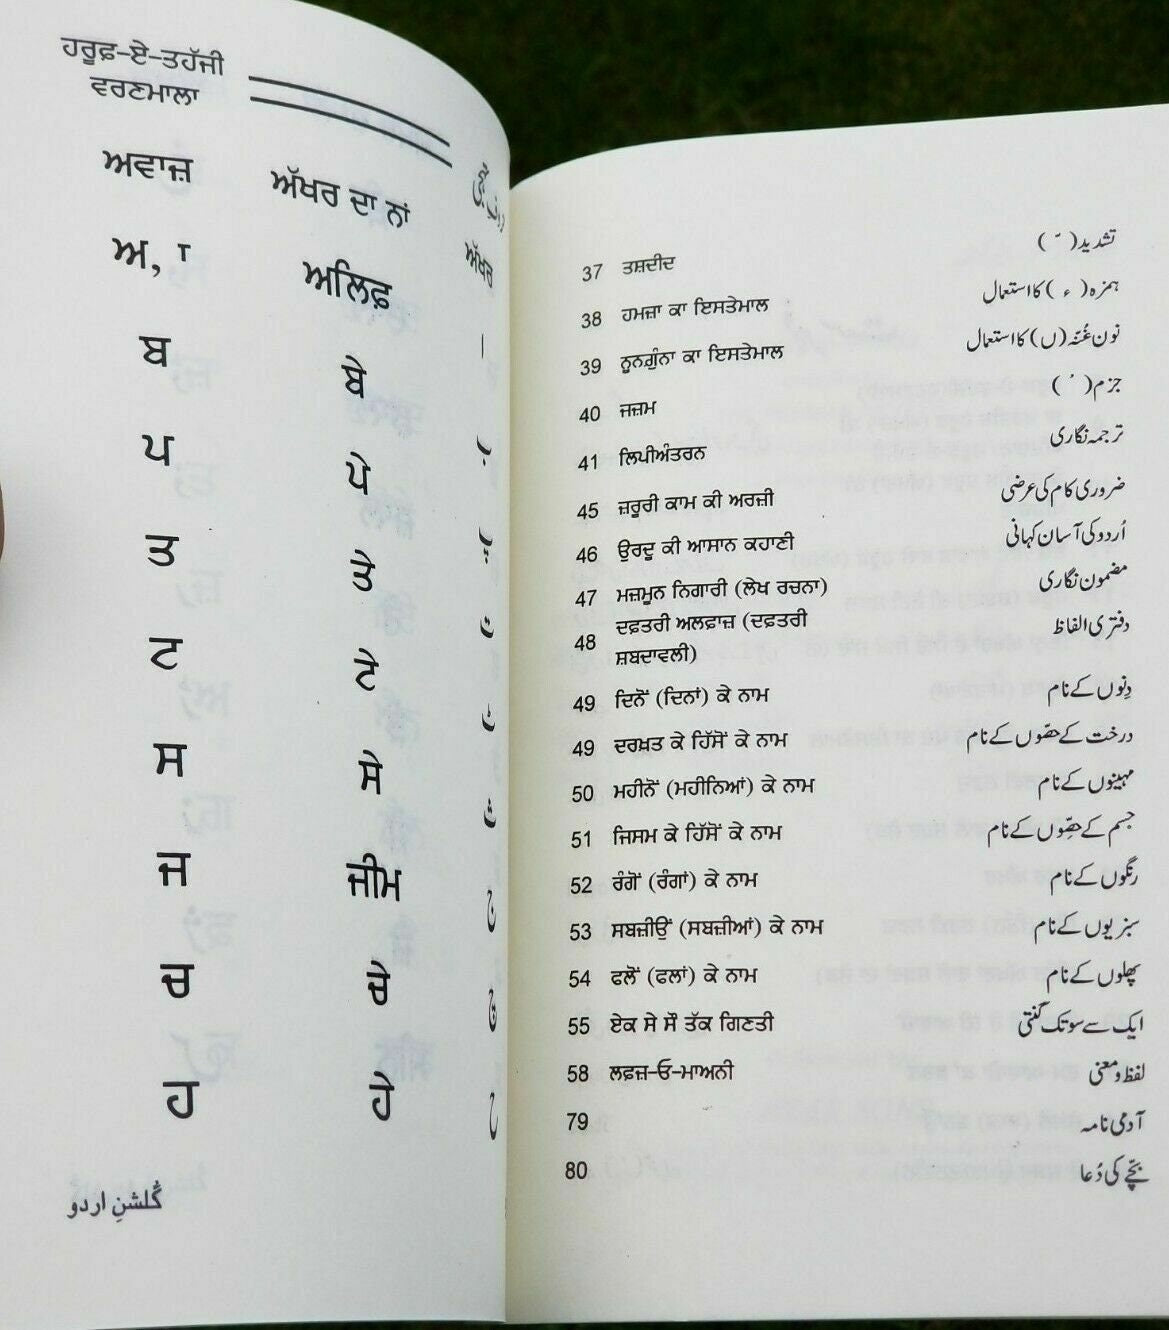 ਹਰੂਫ਼-ਏ-ਤਹੱਜੀ
ਵਰਣਮਾਲਾ
ਅਵਾਜ਼ ਅੱਖਰ ਦਾ ਨਾਂ ਅੱਖਰ
ਅ, ਾ ਅਲਿਫ਼ ا
ਬ ਬੇ ب
ਪ ਪੇ پ
ਤ ਤੇ ت
ਟ ਟੇ
ਸ ਸੇ ث
ਜ ਜੀਮ ج
ਚ ਚੇ چ
ਹ ਹੇ ح
گلشنِ اردو
37 ਤਸ਼ਦੀਦ تشدید ( ّ )
38 ਹਮਜ਼ਾ ਕਾ ਇਸਤੇਮਾਲ ہمزہ ( ء ) کا استعمال
39 ਨੂਨਗੁੰਨਾ ਕਾ ਇਸਤੇਮਾਲ نون غُنّہ (ں) کا استعمال
40 ਜਜ਼ਮ جزم ( ْ )
41 ਲਿਪੀਅੰਤਰਨ ترجمہ نگاری
45 ਜ਼ਰੂਰੀ ਕਾਮ ਕੀ ਅਰਜ਼ੀ ضروری کام کی عرضی
46 ਉਰਦੂ ਕੀ ਆਸਾਨ ਕਹਾਣੀ اُردو کی آسان کہانی
47 ਮਜ਼ਮੂਨ ਨਿਗਾਰੀ (ਲੇਖ ਰਚਨਾ) مضمون نگاری
48 ਦਫ਼ਤਰੀ ਅਲਫ਼ਾਜ਼ (ਦਫ਼ਤਰੀ دفتری الفاظ
ਸ਼ਬਦਾਵਲੀ)
49 ਦਿਨੋਂ (ਦਿਨਾਂ) ਕੇ ਨਾਮ دِنوں کے نام
49 ਦਰਖ਼ਤ ਕੇ ਹਿੱਸੋਂ ਕੇ ਨਾਮ درخت کے حصّوں کے نام
50 ਮਹੀਨੋਂ (ਮਹੀਨਿਆਂ) ਕੇ ਨਾਮ مہینوں کے نام
51 ਜਿਸਮ ਕੇ ਹਿੱਸੋਂ ਕੇ ਨਾਮ جسم کے حصّوں کے نام
52 ਰੰਗੋਂ (ਰੰਗਾਂ) ਕੇ ਨਾਮ رنگوں کے نام
53 ਸਬਜ਼ੀਉਂ (ਸਬਜ਼ੀਆਂ) ਕੇ ਨਾਮ سبزیوں کے نام
54 ਫਲੋਂ (ਫਲਾਂ) ਕੇ ਨਾਮ پھلوں کے نام
55 ਏਕ ਸੇ ਸੌ ਤੱਕ ਗਿਣਤੀ ایک سے سو تک گنتی
58 ਲਫ਼ਜ਼-ਓ-ਮਾਅਨੀ لفظ و معنی
79 آدمی نامہ
80 بچّے کی دُعا